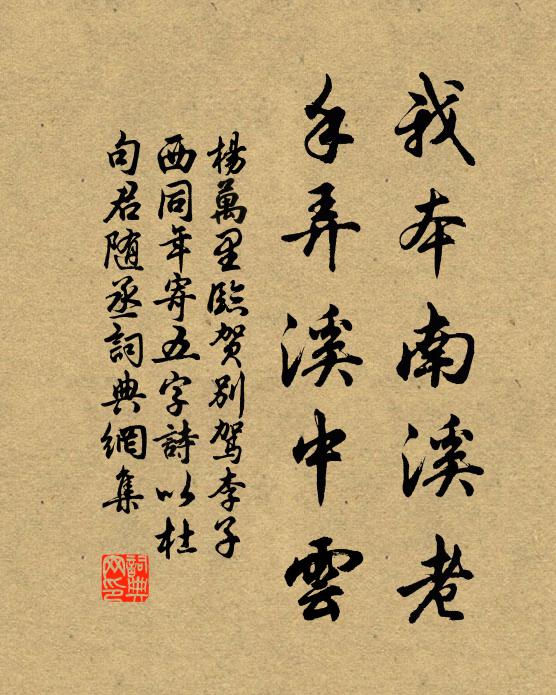 我本南溪老
手弄溪中雲
楊萬里臨賀別駕李子
西同年寄五字詩以杜
句君随丞詞典網集
詞典
网印